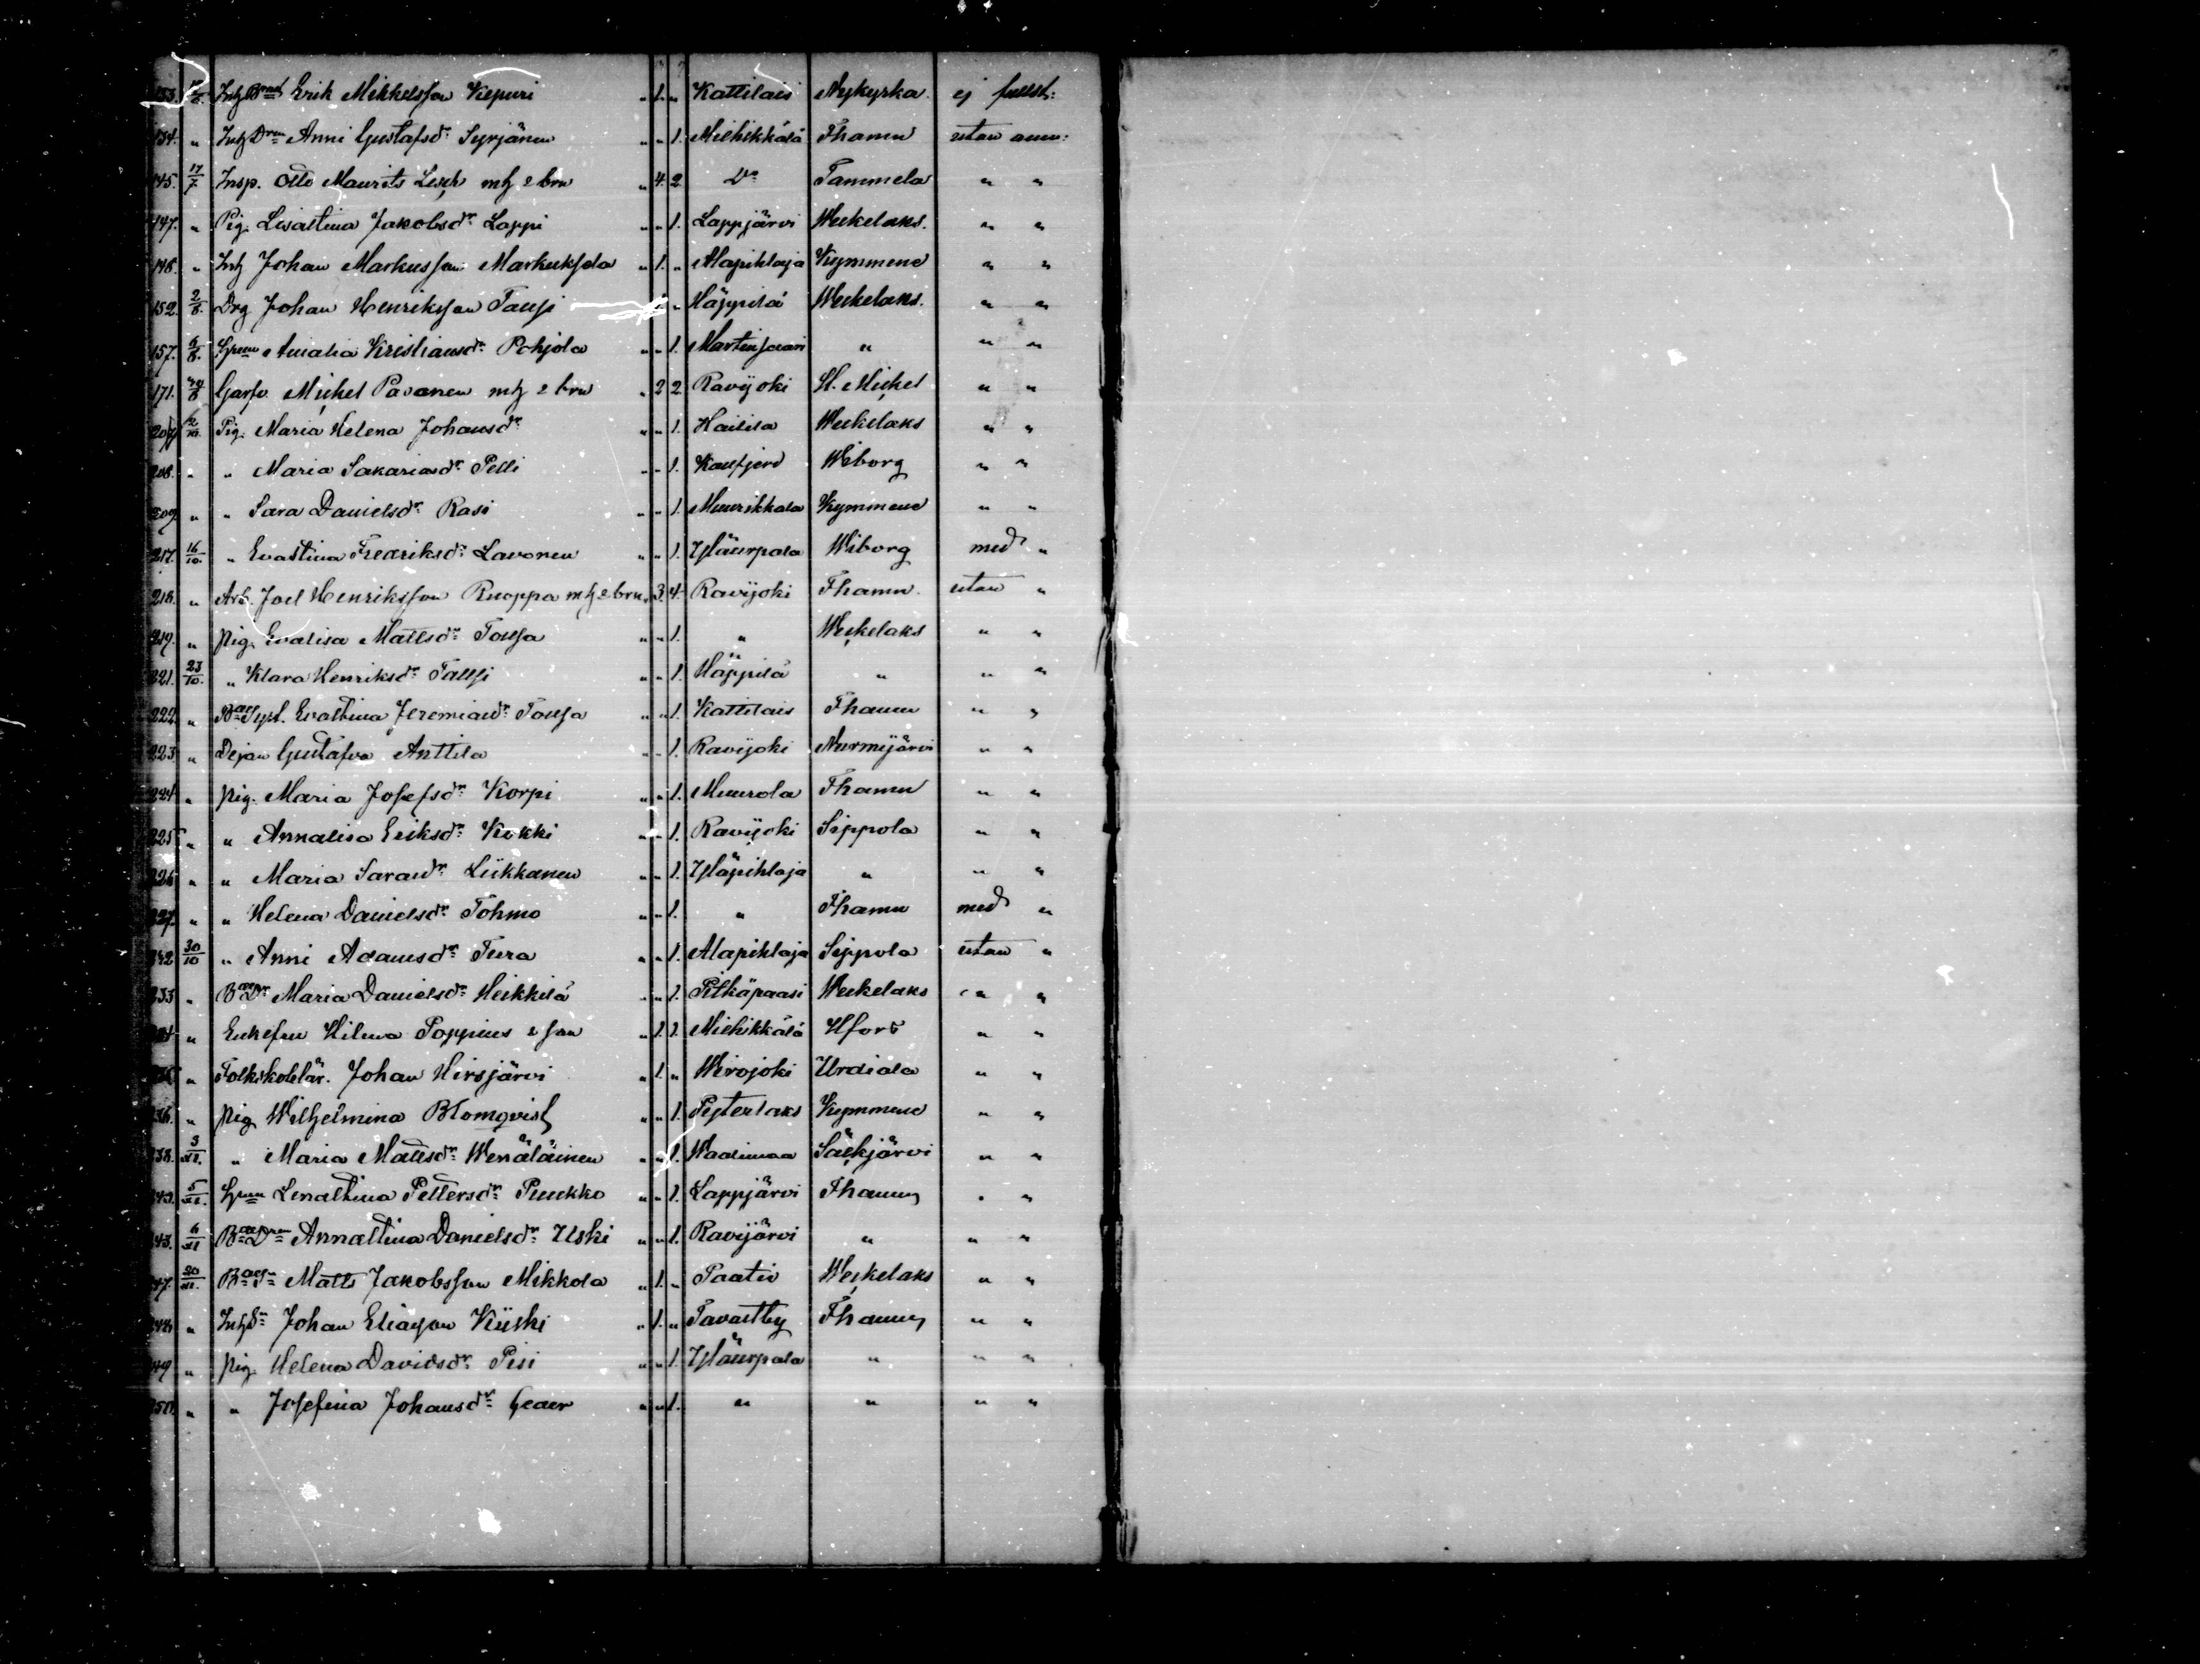 133. Inh Erik Mikkelsson Kepuri " 1. " Kattilais Nykyrka. ej fullst:
134. " Inh Anni Gustafsdr Syrjänen " " 1. Miehikkälä Fhamn utan anm:
145. 17/7 Insp. Otto Maurits Lesch mh o brn " 4. 2 Do Tammela " "
147. " Pig. Lisastina Jakobsdr Lappi " " 1. Lappjärvi Weckelaks. " "
148. " Inh Johan Markusson Markuksela " 1. " Alapihlaja Kymmene " "
152. 2/8. Drg Johan Henriksson Taussi " Häppilä Weckelaks. " "
157. 6/8. Amalia Kristiansdr Pohjola " " 1. Martinsaari " " "
171. /8 Garfv. Michel Pavanen mh o brn " 2 2 Ravijoki St. Michel " "
207. 2/10. Pig. Maria Helena Johansdr " " 1. Hailila Weckelaks " "
208. " " Maria Sakariasdr Pelli " " 1. Kansjerd Wiborg " "
209. " " Sara Danielsdr Rasi " " 1. Muurikkala Kymmene " "
217. 16/10. " Evastina Fredriksdr Lavonen " " 1. Yläurpala Wiborg med "
218. " Arb. Joel Henriksson Ruoppa mh o brn " 3. 4. Ravijoki Fhamn. utan "
219. " Pig. Evalisa Mattsdr Tousa " " 1. " Weckelaks " "
221. 23/10. " Klara Henriksdr Taussi " " 1. Häppilä " " "
222. " Evastina Jeremiasdr Tousa " " 1. Kattilais Fhamn " "
223 " Dejan Gustafva Anttila " " 1. Ravijoki Nurmijärvi " "
224. " Pig. Maria Josefsdr Korpi " " 1. Muurola Fhamn " "
225. " " Annalisa Eriksdr Kokki " " 1. Ravijoki Sippola " "
226. " " Maria Sarasdr Liikkanen " " 1. Yläpihlaja " " "
227. " " Helena Danielsdr Töhmo " " 1. " Fhamn med "
30/10 " Anni Adamsdr Tura " " 1. Alapihlaja Sippola utan "
233 " Maria Danielsdr Heikkilä " " 1. Pitkäpaasi Weckelaks " "
" Enkefru Hilma Poppius o son " 1. 1. Miehikkälä Hfors " "
" Folkskolelär. Johan Hirsjärvi " 1. " Wirojoki Urdiala " "
236. " Pig. Wilhelmina Blomqvist " " 1. Pyterlaks Kymmene " "
238. 3/XI. " Maria Mattsdr Wenäläinen " " 1. Waalimaa Säckjärvi " "
5/XI. Lenastina Pettersdr Puukko " " 1. Lappjärvi Fhamn " "
6/XI Annastina Danielsdr Uski " " 1. Ravijärvi " " "
247. 20/XI. Matts Jakobsson Mikkola " 1. " Paatio Weckelaks " "
248. " Inh Sn Johan Eliasson Kiiski " 1. " Tavastby Fhamn " "
249 " Pig. Helena Davidsdr Pisi " " 1. Yläurpala " " "
250. " " Josefina Johansdr Geder " " 1. " " " "